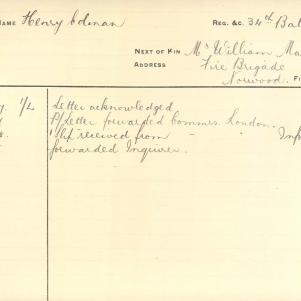 NAME Henry Colman REG. &C. 34th Bat
NEXT OF KIN Mr William Ma
ADDRESS Fire Brigade
Norwood. F
1/L Letter acknowledged.
P/Letter forwarded Commrs. London.
received from Inf
forwarded Inquirer.